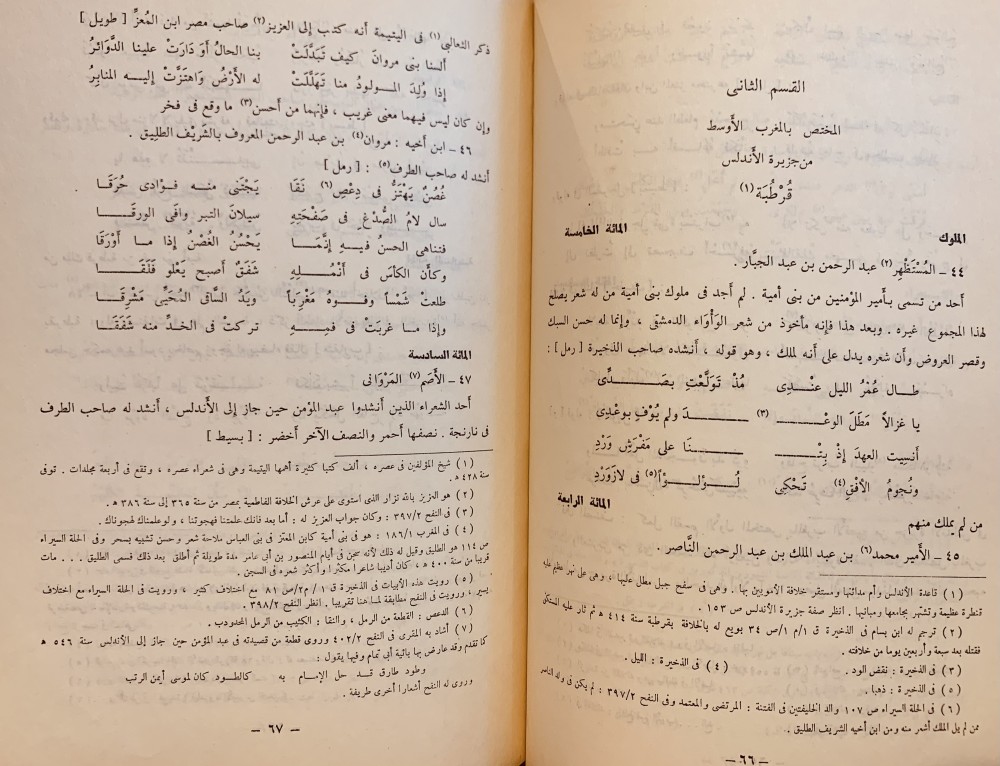 القسم الثانى
المختص بالمغرب الأوسط
من جزيرة الأندلس
قُرْطُبَة (١)
الملوك
المائة الخامسة
٤٤ – المُسْتَظْهِر (٢) عبد الرحمن بن عبد الجبَّار .
أحد من تسمى بأمير المؤمنين من بنى أمية . لم أجد فى ملوك بنى أمية من له شعر يصلح
لهذا المجموع غيره . وبعد هذا فإنه مأخوذ من شعر الوَأْوَاء الدمشقى ، وإنما له حسن السبك
وقصر العروض وأن شعره يدل على أنه لملك ، وهو قوله ، أنشده صاحب الذخيرة [ رمل ] :
طــال عُمْرُ الليل عنْــدِى مُذْ تَولَّعْتِ بصَــدِّى
يا غزالاً مَطَلَ الوعْــ (٣) ــدَ ولم يُوْفِ بوعْدِى
أنسِيتَ العهدَ إذْ بِتْــ ــنَا على مَفْرَشِ وَرْدِ
ونُجومُ الأفْقِ (٤) تَحْكِى لُــؤْلُــؤاً (٥) فى لازَوَرْدِ
المائة الرابعة
من لم يملك منهم
٤٥ – الأمير محمد (٦) بن عبد الملك بن عبد الرحمن النَّاصر .
(١) قاعدة الأندلس وأم مدائنها ومستقر خلافة الأمويين بها . وهى فى سفح جبل مطل عليها ، وهى على نهر عظيم عليه
قنطرة عظيمة وتشتهر بجامعها ومبانيها . انظر صفة جزيرة الأندلس ص ١٥٣ .
(٢) ترجم له ابن بسام فى الذخيرة ق ١/م ١/ص ٣٤ بويع له بالخلافة بقرطبة سنة ٤١٤ هـ ثم ثار عليه المستكفى
فقتله بعد سبعة وأربعين يوما من خلافته .
(٣) فى الذخيرة : نقض الود . (٤) فى الذخيرة : الليل .
(٥) فى الذخيرة : ذهبا .
(٦) فى الحلة السيراء ص ١٠٧ والد الخليفتين فى الفتنة : المرتضى والمعتمد وفى النفح ٣٩٧/٢ : لم يكن فى ولد الناصر
ممن لم يل الملك أشعر منه ومن ابن أخيه الشريف الطليق .
– ٦٦ –
ذكر الثعالبى (١) فى اليتيمة أنه كتب إلى العزيز (٢) صاحب مصر ابن المُعزِّ [ طويل ]
ألسنا بنى مروانَ كيف تَبَدَّلَتْ بنا الحالُ أو دَارَتْ علينا الدَّوَائرُ
إذا وُلِدَ المــولودُ منا تَهَلَّلَتْ له الأرْضُ وَاهتَزَّتْ إليــه المنابرُ
وإن كان ليس فيهما معنى غريب ، فإنهما من أحسن (٣) ما وقع فى فخر
٤٦ – ابن أخيه : مروان (٤) بن عبد الرحمن المعروف بالشَّريف الطليق .
أنشد له صاحب الطرف (٥) : [ رمل ]
غُصُنٌ يَهْتَزُّ فى دِعْصِ (٦) نَقَا يَجْتَنى منـه فــؤادى حُرَقَـا
سال لامُ الصُّدْغِ فى صَفْحَتِهِ سيلانَ التبر وافَى الورقَــا
فتناهى الحسنُ فيــهِ إنَّمَــا يَحْسُنُ الغُصْنُ إذا ما أوْرَقَا
وكأن الكأسَ فى أنْمُــلِهِ شَفَقٌ أصبح يَعْلو فَلَقَـا
طلعتْ شَمْساً وفــوهُ مَغْرِباً ويَدُ السَّاقى المُحَيِّى مَشْرِقَـا
وإذا ما غربَتْ فى فيــهِ تركتْ فى الخدِّ منه شَفَقَــا
المائة السادسة
٤٧ – الأصَم (٧) المَرْوَانى
أحد الشعراء الذين أنشدوا عبد المؤمن حين جاز إلى الأندلس ، أنشد له صاحب الطرف
فى نارنجة . نصفها أحمر والنصف الآخر أخضر : [ بسيط ]
(١) شيخ المؤلفين فى عصره ، ألف كتبا كثيرة أهمها اليتيمة وهى فى شعراء عصره ، وتقع فى أربعة مجلدات . توفى
سنة ٤٢٨ هـ .
(٢) هو العزيز بالله نزار الذى استوى على عرش الخلافة الفاطمية بمصر من سنة ٣٦٥ إلى سنة ٣٨٦ هـ .
(٣) فى النفح ٣٩٧/٢ : وكان جواب العزيز له : أما بعد فانك علمتنا فهجوتنا ، ولو علمناك لهجوناك .
(٤) فى المغرب ١٨٦/١ : هو فى بنى أمية كابن المعتز فى بنى العباس ملاحة شعر وحسن تشبيه بسحر وفى الحلة السيراء
ص ١١٤ هو الطليق وقيل له ذلك لأنه سجن فى أيام المنصور بن أبى عامر مدة طويلة ثم أطلق بعد ذلك فسمى الطليق . . . مات
قريبا من سنة ٤٠٠ هـ ، كان أديبا شاعرا مكثرا وأكثر شعره فى السجن .
(٥) رويت هذه الأبيات فى الذخيرة ق ١ / م ٢/ص ٨١ مع اختلاف كثير ، ورويت فى الحلة السيراء مع اختلاف
يسير ، ورويت فى النفح مطابقة لما هنا تقريبا . انظر النفح ٣٩٨/٢ .
(٦) الدعص : القطعة من الرمل ، والنقا : الكثيب من الرمل المحدودب .
(٧) أشاد به المقرى فى النفح ٤٠٢/٢ وروى قطعة من قصيدته فى عبد المؤمن حين جاز إلى الأندلس سنة ٥٤٦ هـ
كما تقدم وقد عارض بها بائية أبى تمام وفيها يقول :
وطود طارق قــد حل الإمــام به كالطــود كان لموسى أيمن الرتب
وروى له النفح أشعارا أخرى طريفة .
– ٦٧ –